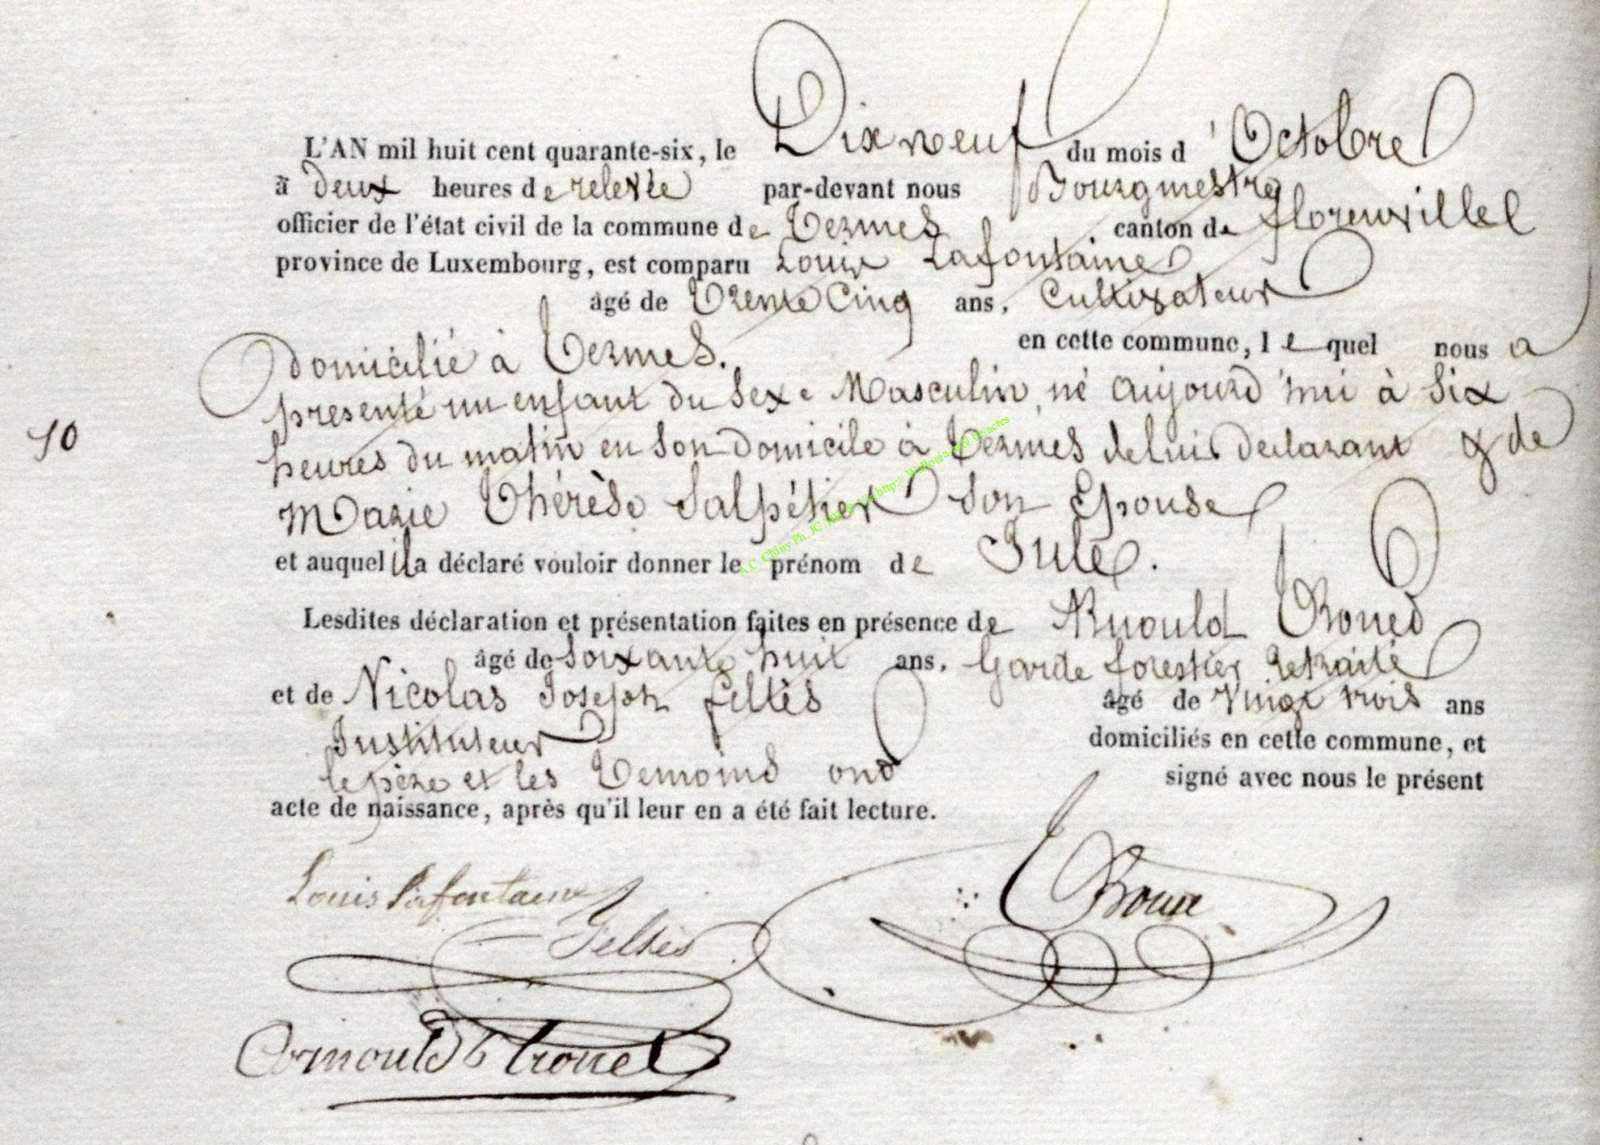 L'AN mil huit cent quarante-six, le Dix neuf du mois d'Octobre
à deux heures de relevée par-devant nous Bourgmestre
officier de l'état civil de la commune de Termes canton de florenville
province de Luxembourg, est comparu Louis Lafontaine
âgé de Trente Cinq ans, Cultivateur
Domicilié à Termes. en cette commune, lequel nous a
présenté un enfant du Sexe Masculin, né aujourd'hui à Six
10
heures du matin en Son domicile à Termes de lui declarant & de
Marie Thérèse Salpétier Son Epouse
et auquel il a déclaré vouloir donner le prénom de Jule.
Lesdites déclaration et présentation faites en présence de Arnould
âgé de Soixante huit ans, Garde forestier retraité
et de Nicolas Joseph feltès âgé de Vingt trois ans
Instituteur domiciliés en cette commune, et
le père et les Temoins ont signé avec nous le présent
acte de naissance, après qu'il leur en a été fait lecture.
Louis Lafontaine
Feltès